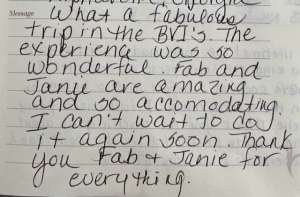 Alpharetta, Georgia
Message What a fabulous
trip in the BVI's. The
experienc was so
wonderful. Fab and
Janie are amazing
and so accomodating.
I can't wait to do
it again soon. Thank
you Fab & Janie for
everything.